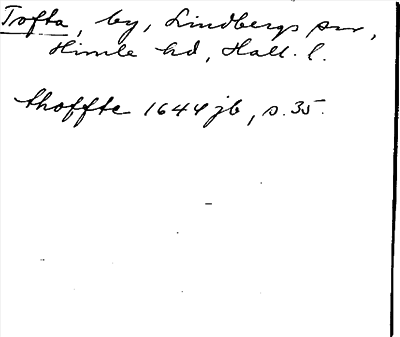 Tofta, by, Lindbergs snr,
Himle hd, Hall. l.
thoffte 1644 jb, s. 35.